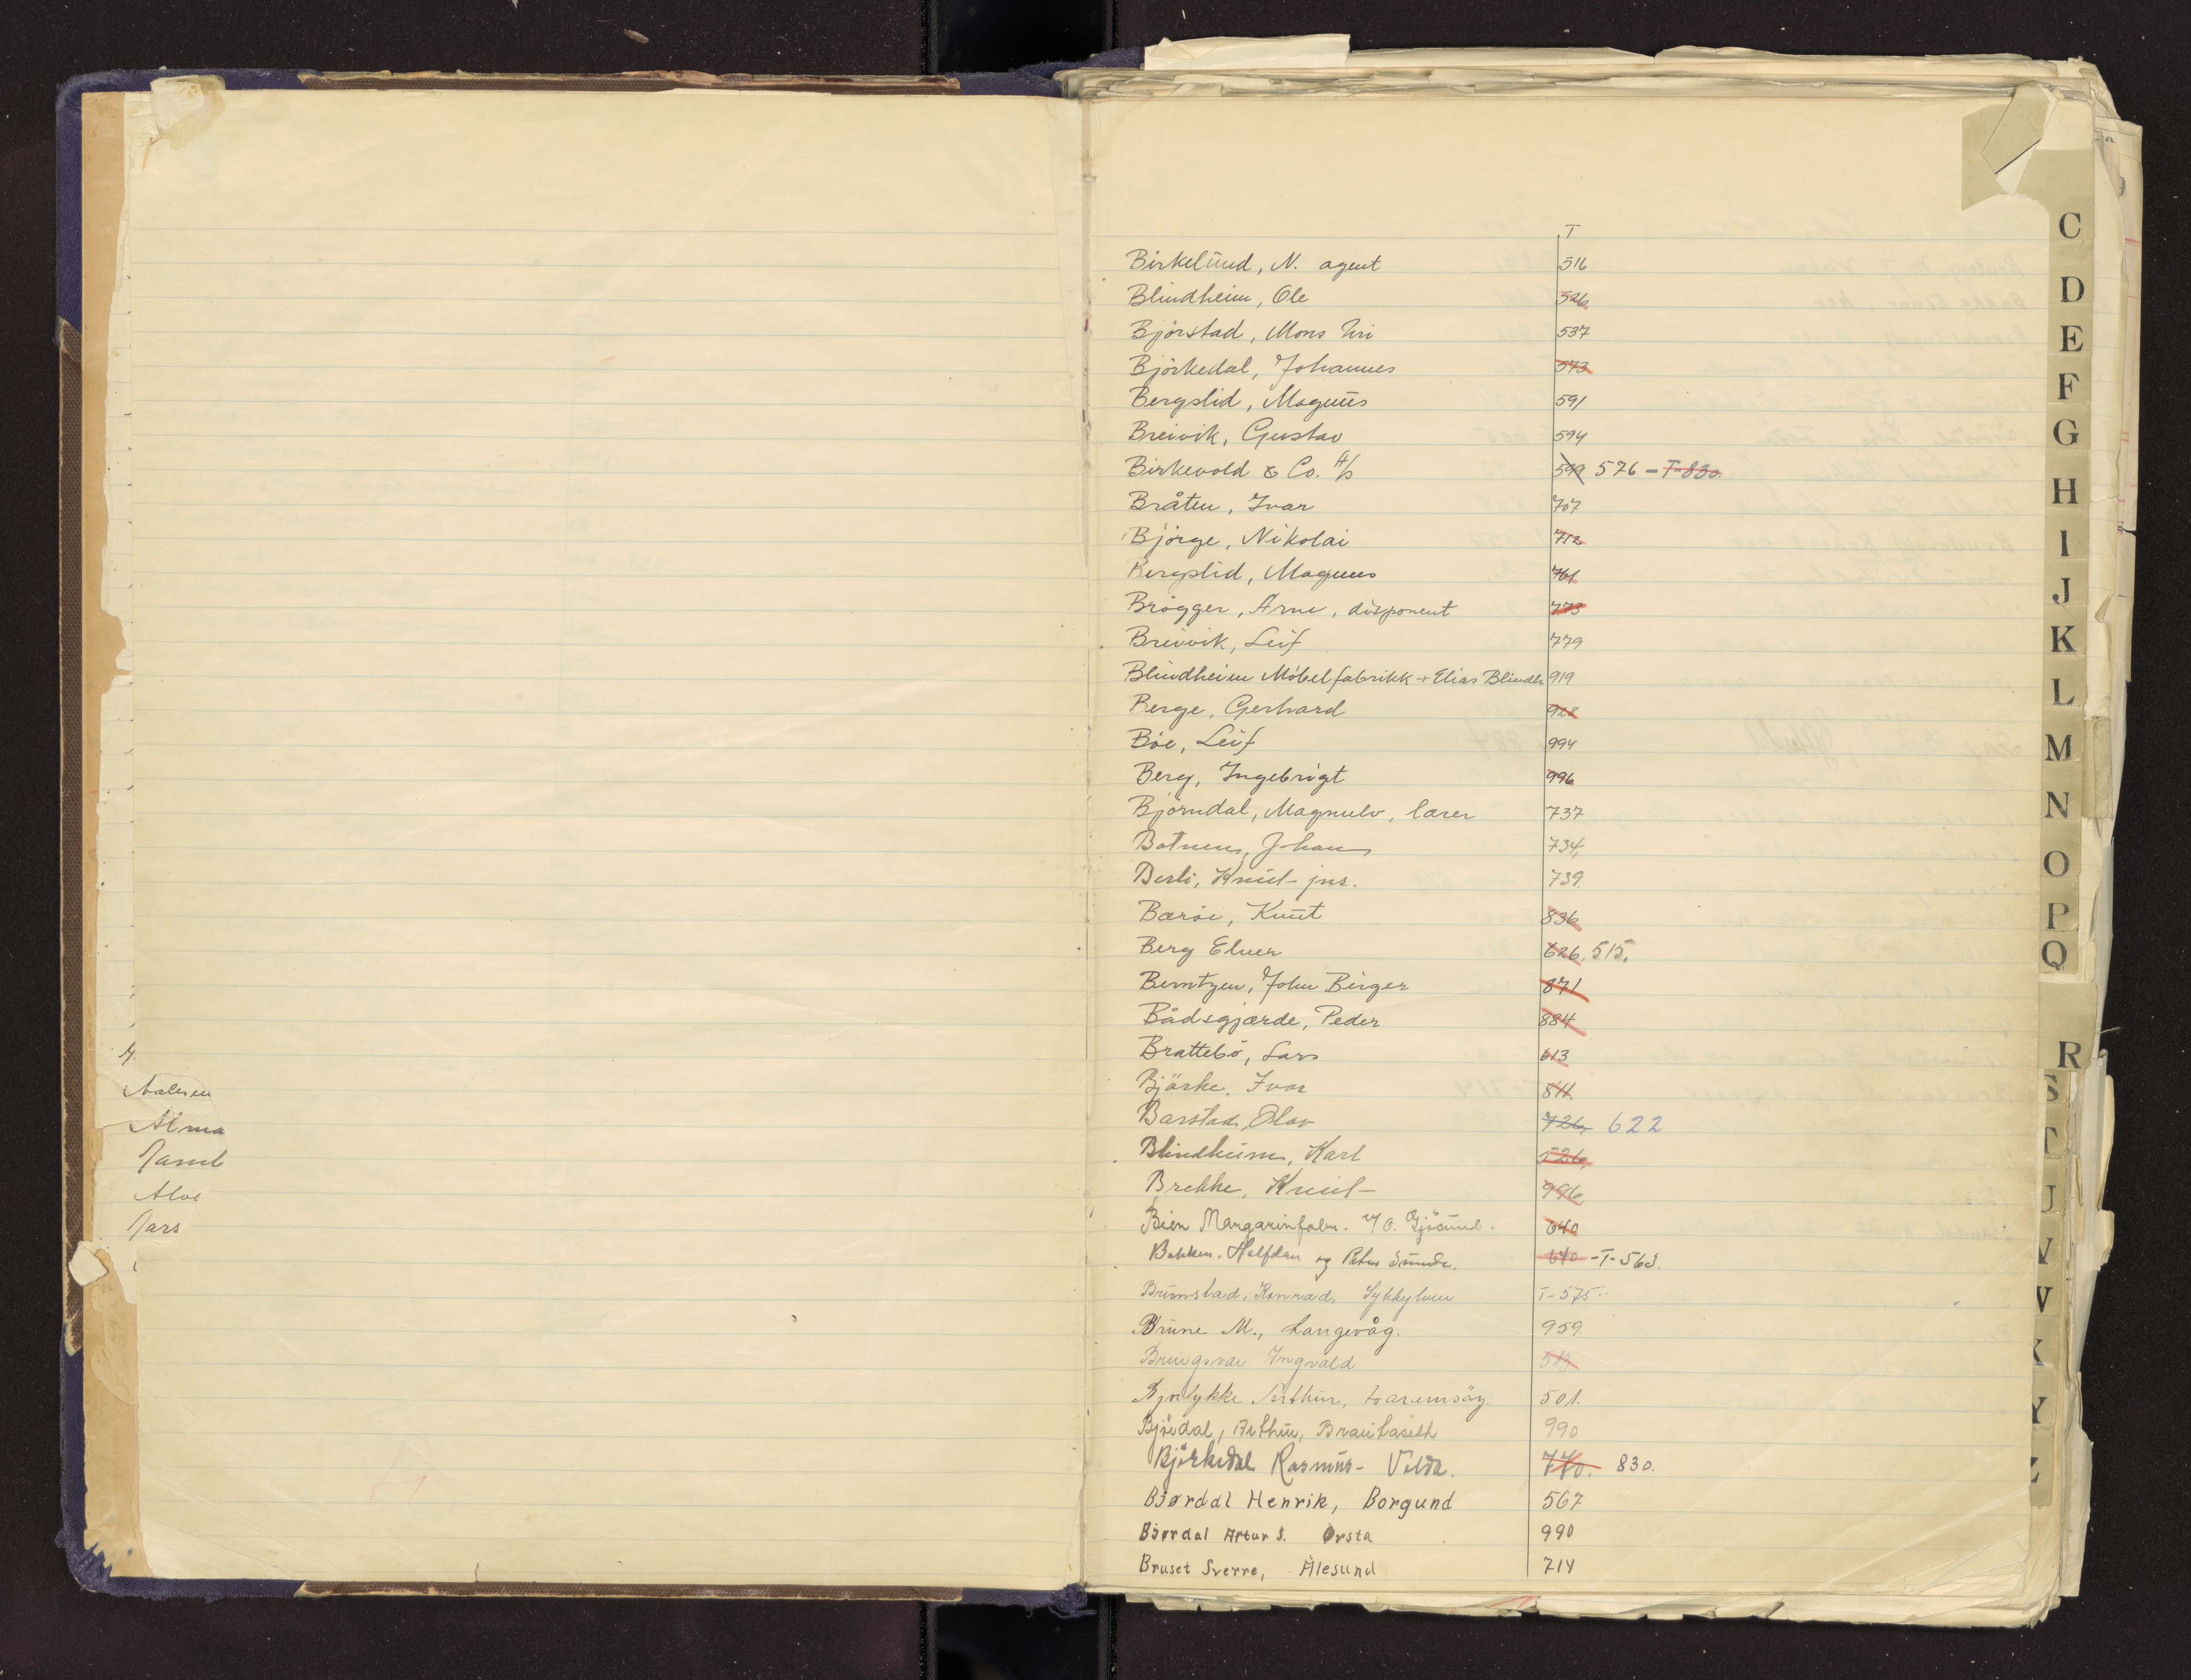 Aalesen
Alma
Alve
Jars
T
Birkelund, N. agent 516
Blindheim, Ole 526
Björstad, Mons 537
Björkedal, Johannes 573
Bergslid, Magnus 591
Breivik, Gustav 594
Birkevold & Co. A/s 599 576 - T-830
Bråten, Ivar 707
Björge, Nikolai 712
Bergslid, Magnus 761
Brögger, Arne, disponent 773
Breivik, Leif 779
Blindheim Möbelfabrikk + Elias Blindh 919
Berge, Gerhard 928
Böe, Leif 994
Berg, Ingebrigt 996
Björndal, Magnulv, lærer 737
Botnens, Johan 734
Besli, Knut jns. 739
Bæröe, Knut 836
Berg Elver 626, 515.
Berntzen, John Birger 871
Bådsgjærde, Peder 884
Brattebö, Lars 613
Björke, Ivar 811
Barstad, Olav 726, 622
Blindheim, Karl 526
Brekke, Knut 996
Bien Margarinfabr. v/ O. Gjösund. 640
Bakken, Halfdan og Peter Sunde. 640 - T-563.
Brunstad, Konrad, Sykkylven T-575
Brune M., Langevåg. 959
Ingvald 513
Arthur, 501.
Björdal, Arthur, 990
Björkedal Rasmus - Volda. 770. 830.
Bjørdal Henrik, Borgund 567
Bjørdal Artur S. Ørsta 990
Bruset Sverre, Ålesund 714
C
D
E
F
G
H
I
J
K
L
M
N
O
P
Q
R
S
T
U
V
Y
Z